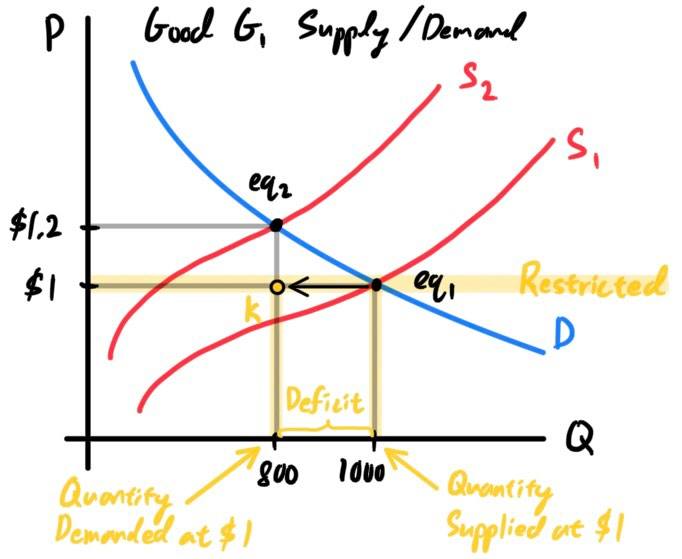 P
Good G₁ Supply/Demand
S₂
S₁
eq₂
$1.2
$1
eq₁
Restricted
k
D
Deficit
Q
800
1000
Quantity
Demanded at $1
Quantity
Supplied at $1